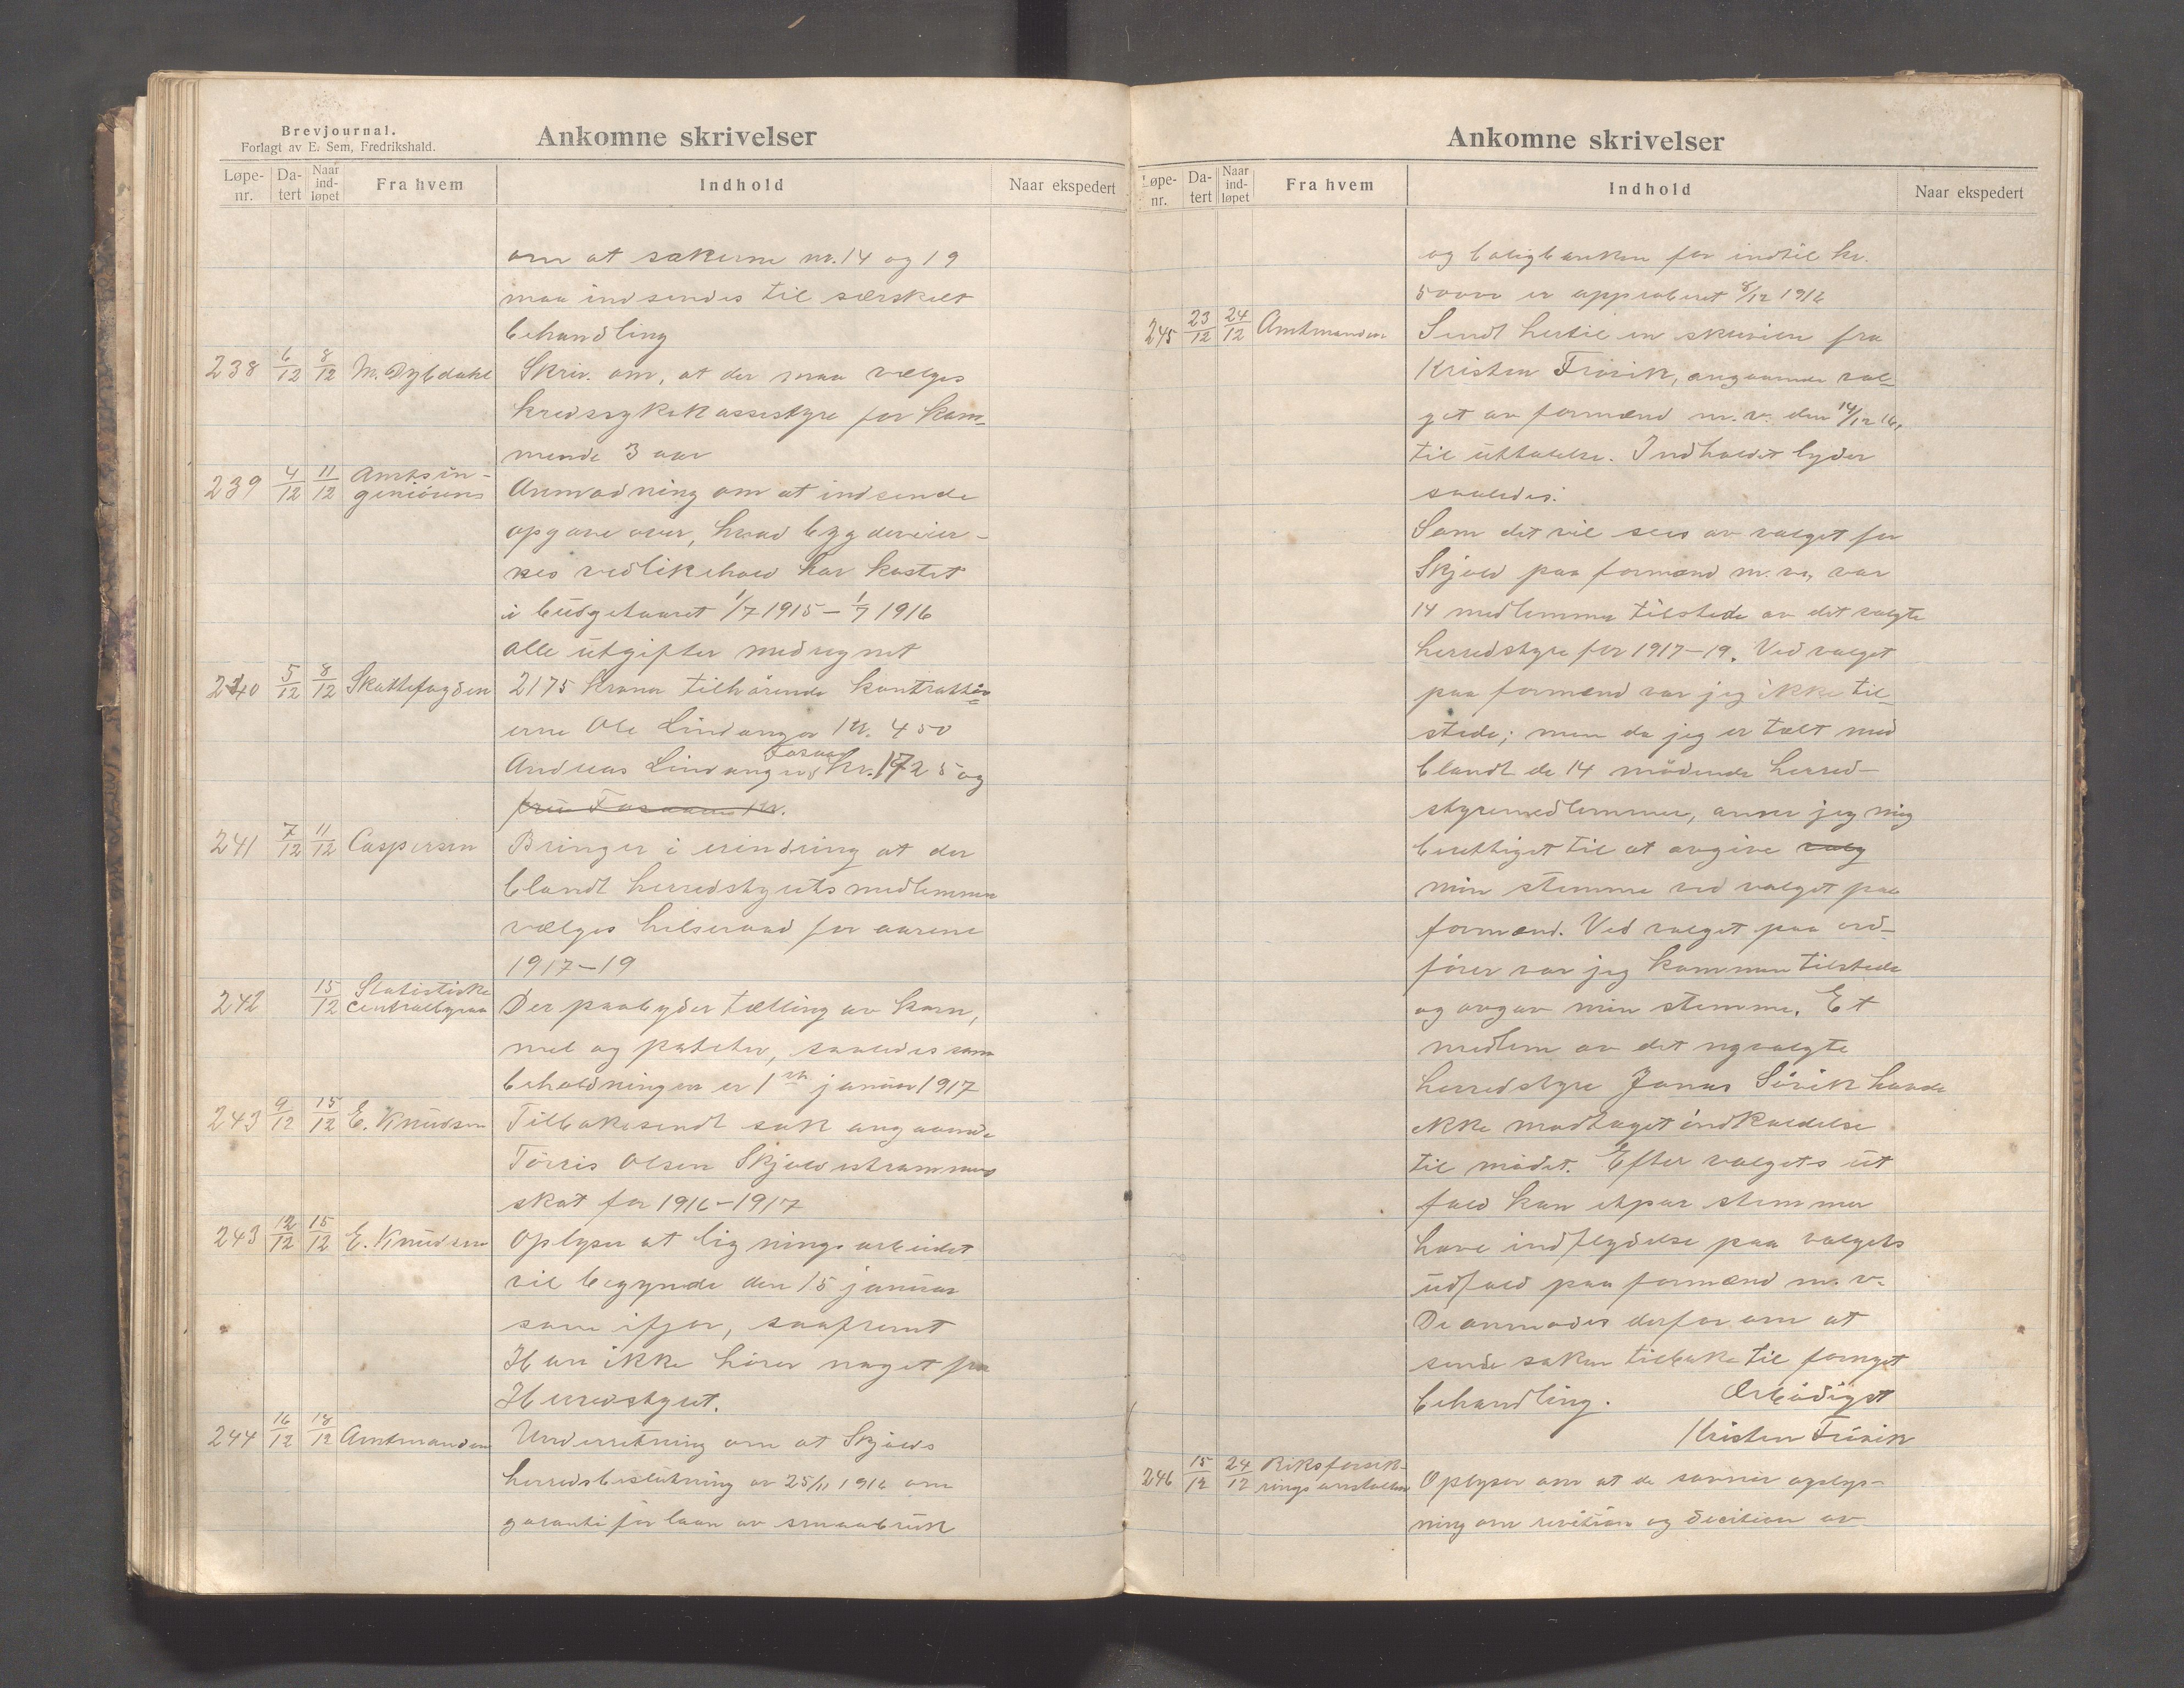 Brevjournal.
Forlagt av E. Sem, Fredrikshald.
Ankomne skrivelser
Løpe-nr. Da-tert Naar ind-løpet Fra hvem Indhold Naar ekspedert
om at sakerne nr. 14 og 19
maa indsendes til særskilt
behandling
238 6/12 8/12 M. Dybdahl Skriv. om, at der maa vælges
kredssykekassestyre for kom-
mende 3 aar
239 4/12 11/12 Amtsin-
geniørens Anmodning om at indsende
opgave over, hvad bygdeveier-
nes vedlikehold har kostet
i budgetaaret 1/7 1915 – 1/7 1916
alle utgifter medregnet
240 5/12 8/12 Skattefogden 2175 kroner tilhørende kontraktør
erne Ole Lindanger kr. 450
Andreas Lindanger kr. 1725 og
241 7/12 11/12 Caspersen Bringer i erindring at der
blandt herredstyrets medlemmer
vælges helseraad for aarene
1917–19
242 15/12 Statistiske
Centralbyraa Der paabyder tælling av korn,
mel og poteter, saaledes som
beholdningen er 1ste januar 1917
243 9/12 15/12 E. Knudsen Tilbakesendt sak angaaende
Tørris Olsen Skjoldestrømmens
skat for 1916–1917
243 12/12 15/12 E. Knudsen Oplyser at ligningsarbeidet
vil begynde den 15 januar
som ifjor, saafremt
Han ikke hører noget fra
Herredstyret.
244 16/12 18/12 Amtmanden Underretning om at Skjolds
herredsbeslutning av 25/11 1916 om
garanti for laan av smaabruk
Ankomne skrivelser
Løpe-nr. Da-tert Naar ind-løpet Fra hvem Indhold Naar ekspedert
og boligbanken for indtil kr.
5000 er approberet 8/12 1916
245 23/12 24/12 Amtmanden Sendt hertil en skrivelse fra
Kristen Frøvik, angaaende val-
get av formænd m.v. den 14/12 16,
til uttalelse. Indholdet lyder
saaledes:
Som det vil sees av valget for
Skjold paa formænd m.v. var
14 medlemmer tilstede av det valgte
herredstyre for 1917–19. Ved valget
paa formænd var jeg ikke til-
stede; men da jeg er talt med
blandt de 14 mødende herred-
styremedlemmer, anser jeg mig
berettiget til at avgive valg
min stemme ved valget paa
formænd. Ved valget paa ord-
fører var jeg kommen tilstede
og avgav min stemme. Et
medlem av det nyvalgte
herredstyre Jonas Sørvik havde
ikke modtaget indkaldelse
til mødet. Efter valgets ut
fald kan etpar stemmer
have indflydelse paa valgets
udfald paa formænd m.v.
De anmodes derfor om at
sende saken tilbake til fornyet
behandling. Ærbødigst
Kristen Frøvik
246 15/12 24/12 Riksforsik-
ringsanstalten Oplyser om at de savner oplys-
ning om revision og decision av